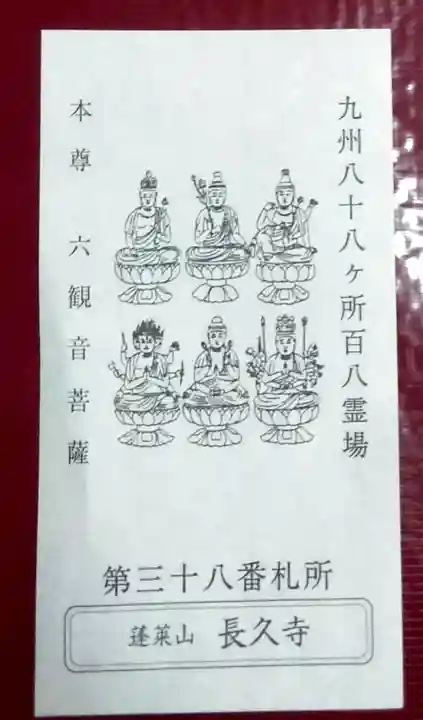 九州八十八ヶ所百八霊場
本尊 六観音菩薩
第三十八番札所
蓬莱山 長久寺